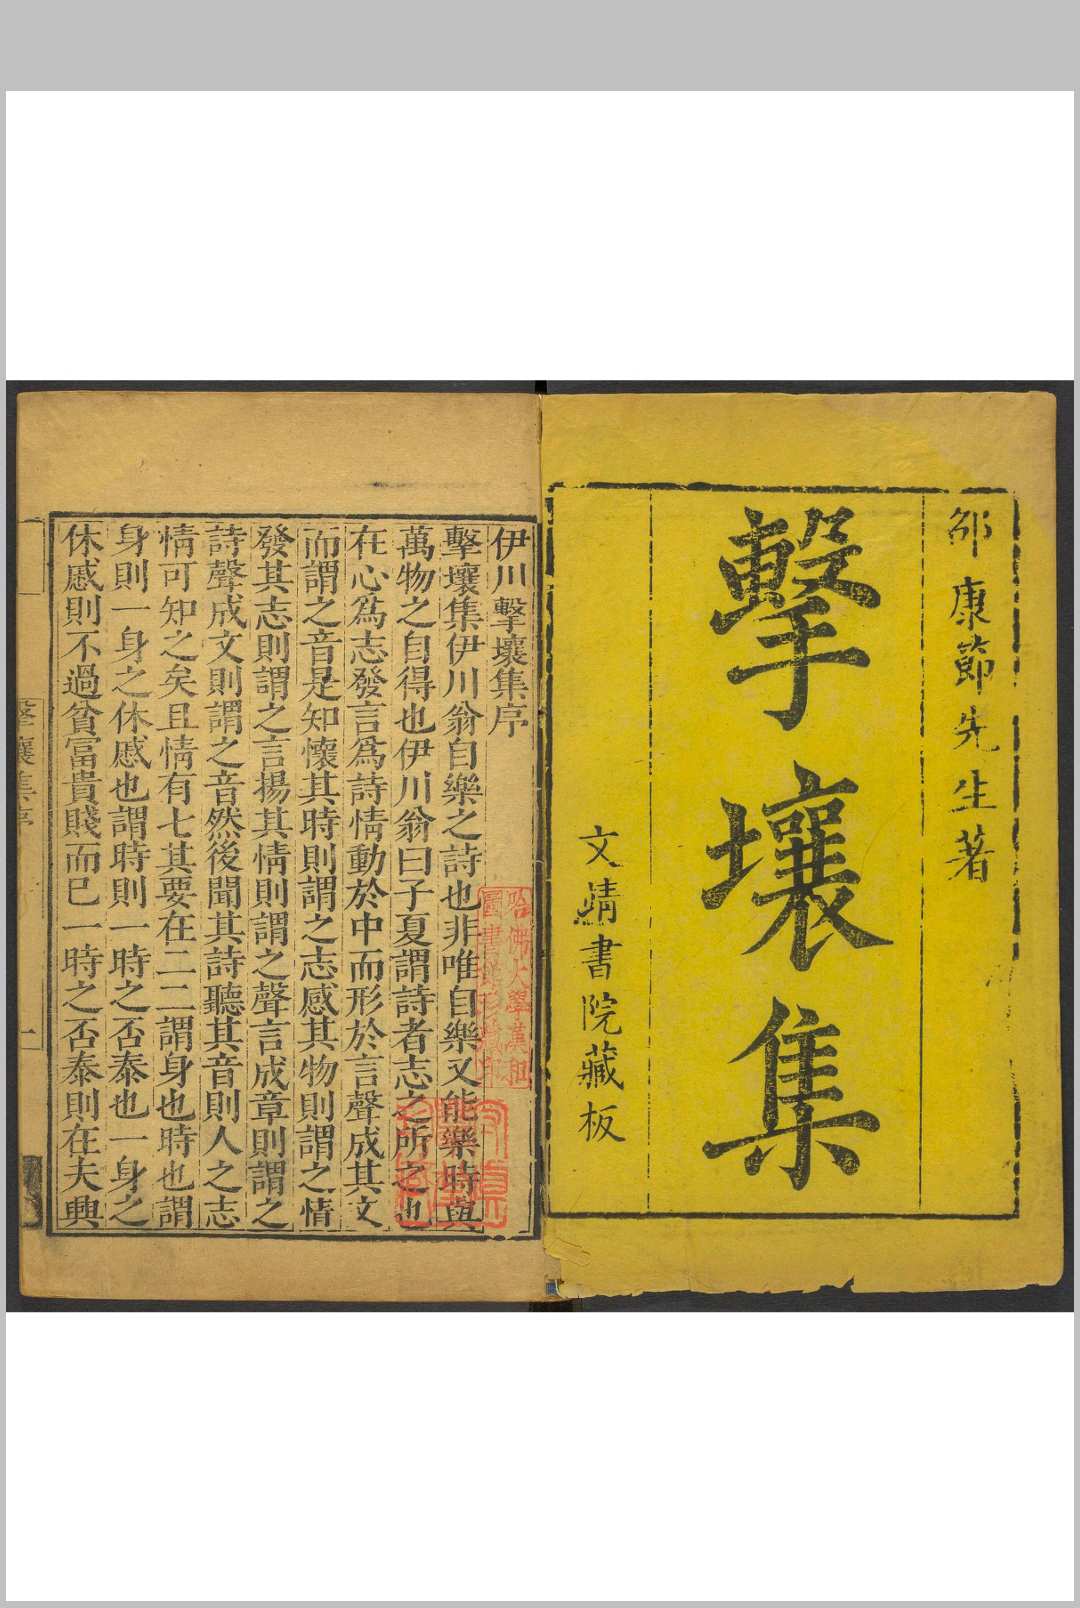 邵康節先生著
擊壤集
文靖書院藏板
伊川擊壤集序
擊壤集伊川翁自樂之詩也非唯自樂又能樂時與
萬物之自得也伊川翁曰子夏謂詩者志之所之也
在心爲志發言爲詩情動於中而形於言聲成其文
而謂之音是知懷其時則謂之志感其物則謂之情
發其志則謂之言揚其情則謂之聲言成章則謂之
詩聲成文則謂之音然後聞其詩聽其音則人之志
情可知之矣且情有七其要在二二謂身也時也謂
身則一身之休慼也謂時則一時之否泰也一身之
休慼則不過貧富貴賤而已一時之否泰則在夫興
擊壤集序
一
哈佛大學漢和
圖書館珍藏印